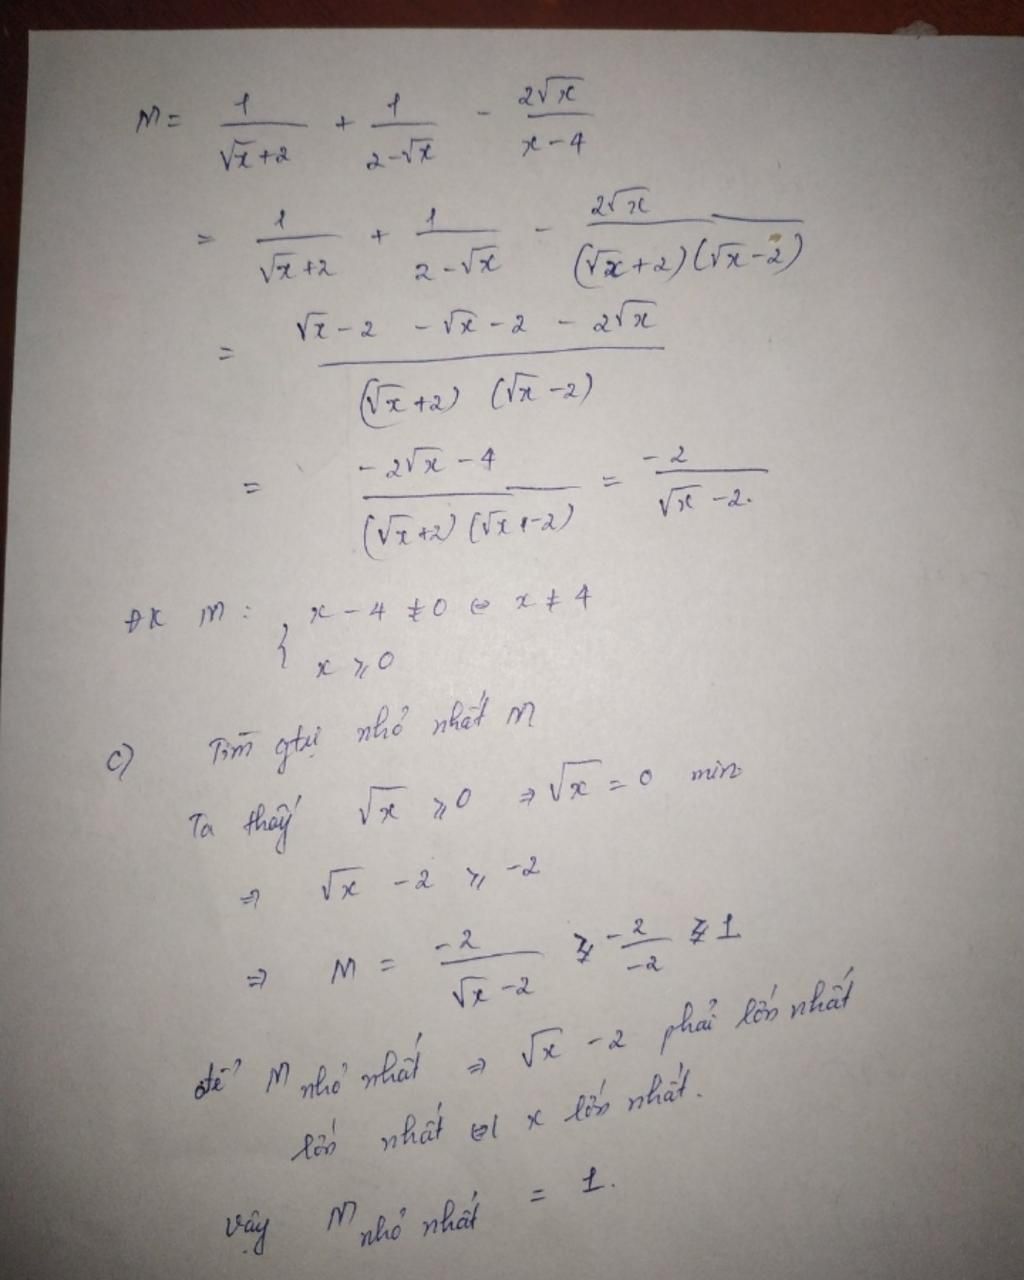 M = 1/(√x+2) + 1/(2-√x) - 2√x/(x-4)
= 1/(√x+2) + 1/(2-√x) - 2√x/((√x+2)(√x-2))
= (√x-2 -√x-2 - 2√x)/((√x+2) (√x-2))
= (-2√x - 4)/((√x+2)(√x-2)) = -2/(√x-2.)
ĐK M: { x - 4 ≠ 0 ⇔ x ≠ 4
x ≥ 0
c) Tìm gtrị nhỏ nhất M
Ta thấy √x ≥ 0 ⇒ √x = 0 min
⇒ √x - 2 ≥ -2
⇒ M = -2/(√x-2) ≥ -2/-2 ≥ 1
để M nhỏ nhất ⇒ √x - 2 phải lớn nhất
lớn nhất x lớn nhất.
vậy M nhỏ nhất = 1.